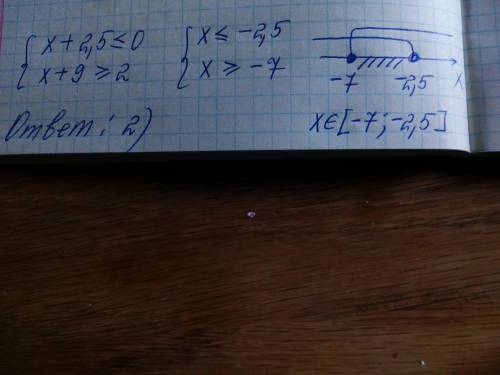 {x+2,5≤0 {x≤-2,5
{x+9≥2 {x≥-7
-7 -2,5 x
Ответ: 2) x∈[-7;-2,5]